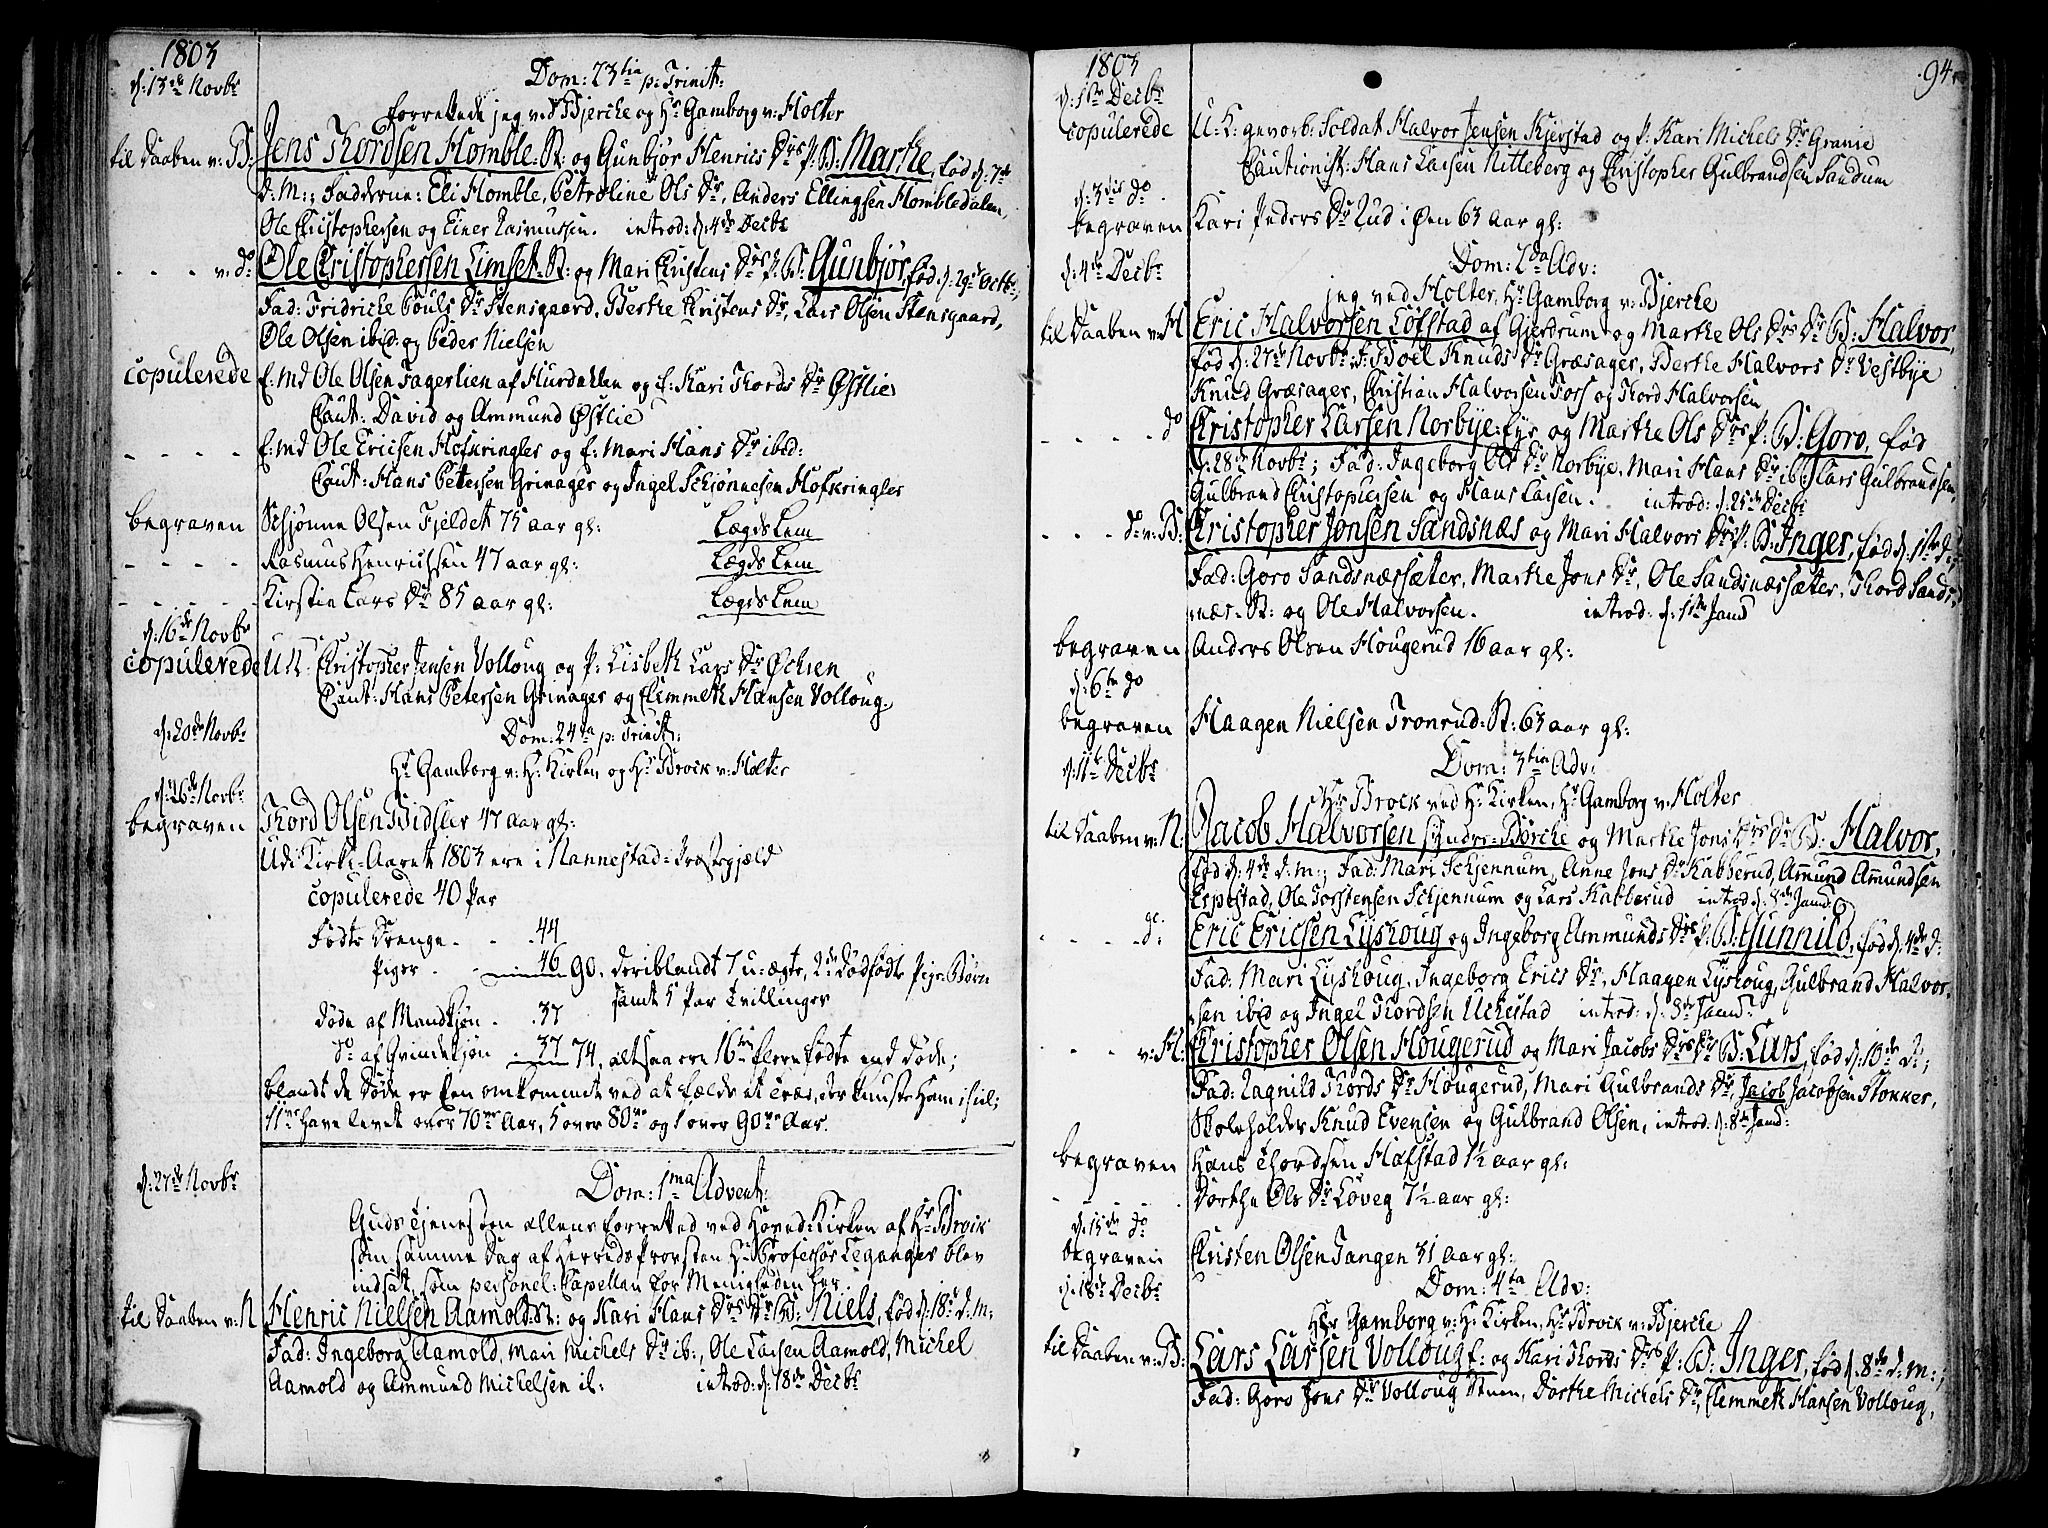 1803
d: 13de Novbr
Dom: 23tia p: Trinit:
forrettede jeg ved Bjerche og Hr Gamborg v: Holter
til Daaben v: B:
Jens Thordsen Homble. St: og Gunbjør Henrics Drs P: B: Marthe, fød d: 7de
d: M:; Fadderne: Eli Homble, Petroline Ols Dr, Anders Ellingsen Hombledalen,
Ole Christophersen og Einer Rasmussen. introd: d: 4de Decbr
- - - v: do
Ole Christophersen Limset. St: og Mari Christens Drs P: B: Gunbjør, fød d: 29de Octbr;
Fad: Fridriche Pouls Dr Stensgaard, Berthe Christens Dr, Lars Olsen Stensgaard,
Ole Olsen ibid: og Peder Nielsen
copulerede
E: Md Ole Olsen Fagerlien af Hurdahlen og E: Kari Thords Dr Østlie
Caut: David og Ammund Østlie
- - - -
E: md Ole Ericsen Hofkringler og E: Mari Hans Dr ibid:
Caut: Hans Petersen Grinager og Ingel Schjønnesen Hofkringler
begraven
Schjønne Olsen Fjeldet 75 aar gl: Lægds Lem
- - - -
Rasmus Henrichsen 47 aar gl: Lægds Lem
- - - -
Kirstin Lars Dr 85 aar gl: Lægds Lem
d: 16de Novbr
copulerede
U K: Christopher Jensen Volloug og P: Lisbeth Lars Dr Ochsen
Caut: Hans Petersen Grinager og Clemmeth Hansen Volloug.
d: 20de Novbr
Dom: 24ta p: Trinit:
Hr Gamborg v: H: Kirken, og Hr Brock v: Holter
d: 26de Novbr
begraven
Thord Olsen Bidsler 47 aar gl:
Udi Kirke-Aaret 1803 ere i Nannestad-Præstegjæld
copulerede 40 Par
Fødte Drenge - - 44
Piger - - 46 90, deriblandt 7 u: ægte, 2de dødfødte Pige-Børn
samt 5 Par Tvillinger
Døde af Mandkjøn - 37
do af Qvindekjøn - 37 74, altsaa ere 16ten flere fødte end døde;
blandt de Døde er Een omkommet ved at fælde et Træe, der knuste Ham ihiel;
11ve have levet over 70ve Aar, 5 over 80ve og 1 over 90ve Aar.
d: 27de Novbr
Dom: 1ma Advent:
Guds Tjenesten allene forrettet ved Hoved-Kirken af Hr Brock
som samme Dag af Herreds Provsten Hr Professor Leganger blev
indsat, som personel-Capellan for Menigheden her.
til Daaben v: N
Henric Nielsen Aamold. St: og Kari Hans Drs Dr B: Niels, fød d: 18de d: M:
Fad: Ingeborg Aamold, Mari Michels Dr ib:, Ole Larsen Aamold, Michel
Aamold og Ammund Michelsen ib: introd: d: 18de Decbr
1803
94
d: 1ste Decbr
copulerede
U: K: gevorb: Soldat Halvor Jensen Kjerstad og P: Kari Michels Dr Granie
Cautionist: Hans Larsen Nitteberg og Christopher Gulbrandsen Sandum
d: 3die do
begraven
Kari Peders Dr Rud i Øen 63 aar gl:
d: 4de Decbr
Dom: 2da Adv:
jeg ved Holter, Hr Gamborg v: Bjerche
til Daaben v: H
Eric Halvorsen Løfstad af Gjerdrum og Marthe Ols Drs Dr B: Halvor,
fød d: 27de Novbr: F: Boel Knuds Dr Græsager, Berthe Halvors Dr Vestbye
Knud Græsager, Christian Halvorsen Fors og Thord Halvorsen
- - - - do
Christopher Larsen Norbye: Eyr og Marthe Ols Drs P: B: Goro, fød
d: 28de Novbr; Fad: Ingeborg Ols Dr Norbye, Mari Hans Dr ib: Lars Gulbrandsen,
Gulbrand Christophersen og Hans Larsen. introd: d: 25de Decbr
- - - do v: B:
Christopher Jonsen Sandsnæs og Mari Halvors Drs P: B: Inger, fød d: 1ste d:;
Fad: Goro Sandsnæssæter, Marthe Jons Dr, Ole Sandsnæssæter, Thord Sands-
næs. St: og Ole Halvorsen. introd: d: 1ste Janu
begraven
Anders Olsen Hougerud 16 aar gl:
d: 6te do
begraven
Haagen Nielsen Tronrud. St: 63 aar gl:
d: 11te Decbr
Dom: 3tia Adv:
Hr Brock ved H: Kirken, Hr Gamborg v: Holter
til Daaben v: N:
Jacob Halvorsen Syndre-Børche og Marthe Jons Drs Dr B: Halvor,
fød d: 4de d: m:; Fad: Mari Schjennum, Anne Jons Dr Kabberud, Amund Amundsen
Erpestad, Ole Torstensen Schjennum og Lars Kabberud introd d: Janu:
- - - - do
Eric Ericsen Lyshoug og Ingeborg Ammunds Drs P: B: Gunnild, fød d: 4de d:
Fad: Mari Lyshoug, Ingeborg Erics Dr, Haagen Lyshoug, Gulbrand Halvor-
sen ibid og Ingel Thordsen Uckestad introd: d: 3de Janu:
- - - v: H:
Christopher Olsen Hougerud og Mari Jacobs Drs Dr B: Lars, fød d: 10de d:;
Fad: Ragnild Thords Dr Hougerud, Mari Gulbrands Dr, Jacob Jacobsen Stokker,
Skoleholder Knud Evensen og Gulbrand Olsen, introd: d: 8de Janu:
begraven
Hans Thordsen Hafstad 1½ aar gl:
- - - -
Dorthe Ols Dr Løveg 7½ aar gl:
d: 15de do
begraven
Christen Olsen Tangen 31 aar gl:
d: 18de Decbr
Dom: 4ta Adv:
Hr Gamborg v: H: Kirken, Hr Brock v: Bjerche
til Daaben v: B:
Lars Larsen Volloug E: og Kari Thords Drs P: B: Inger, fød d: 8de d: m:;
Fad: Goro Jons Dr Volloug Stuen, Dorthe Michels Dr, Clemmeth Hansen Volloug,